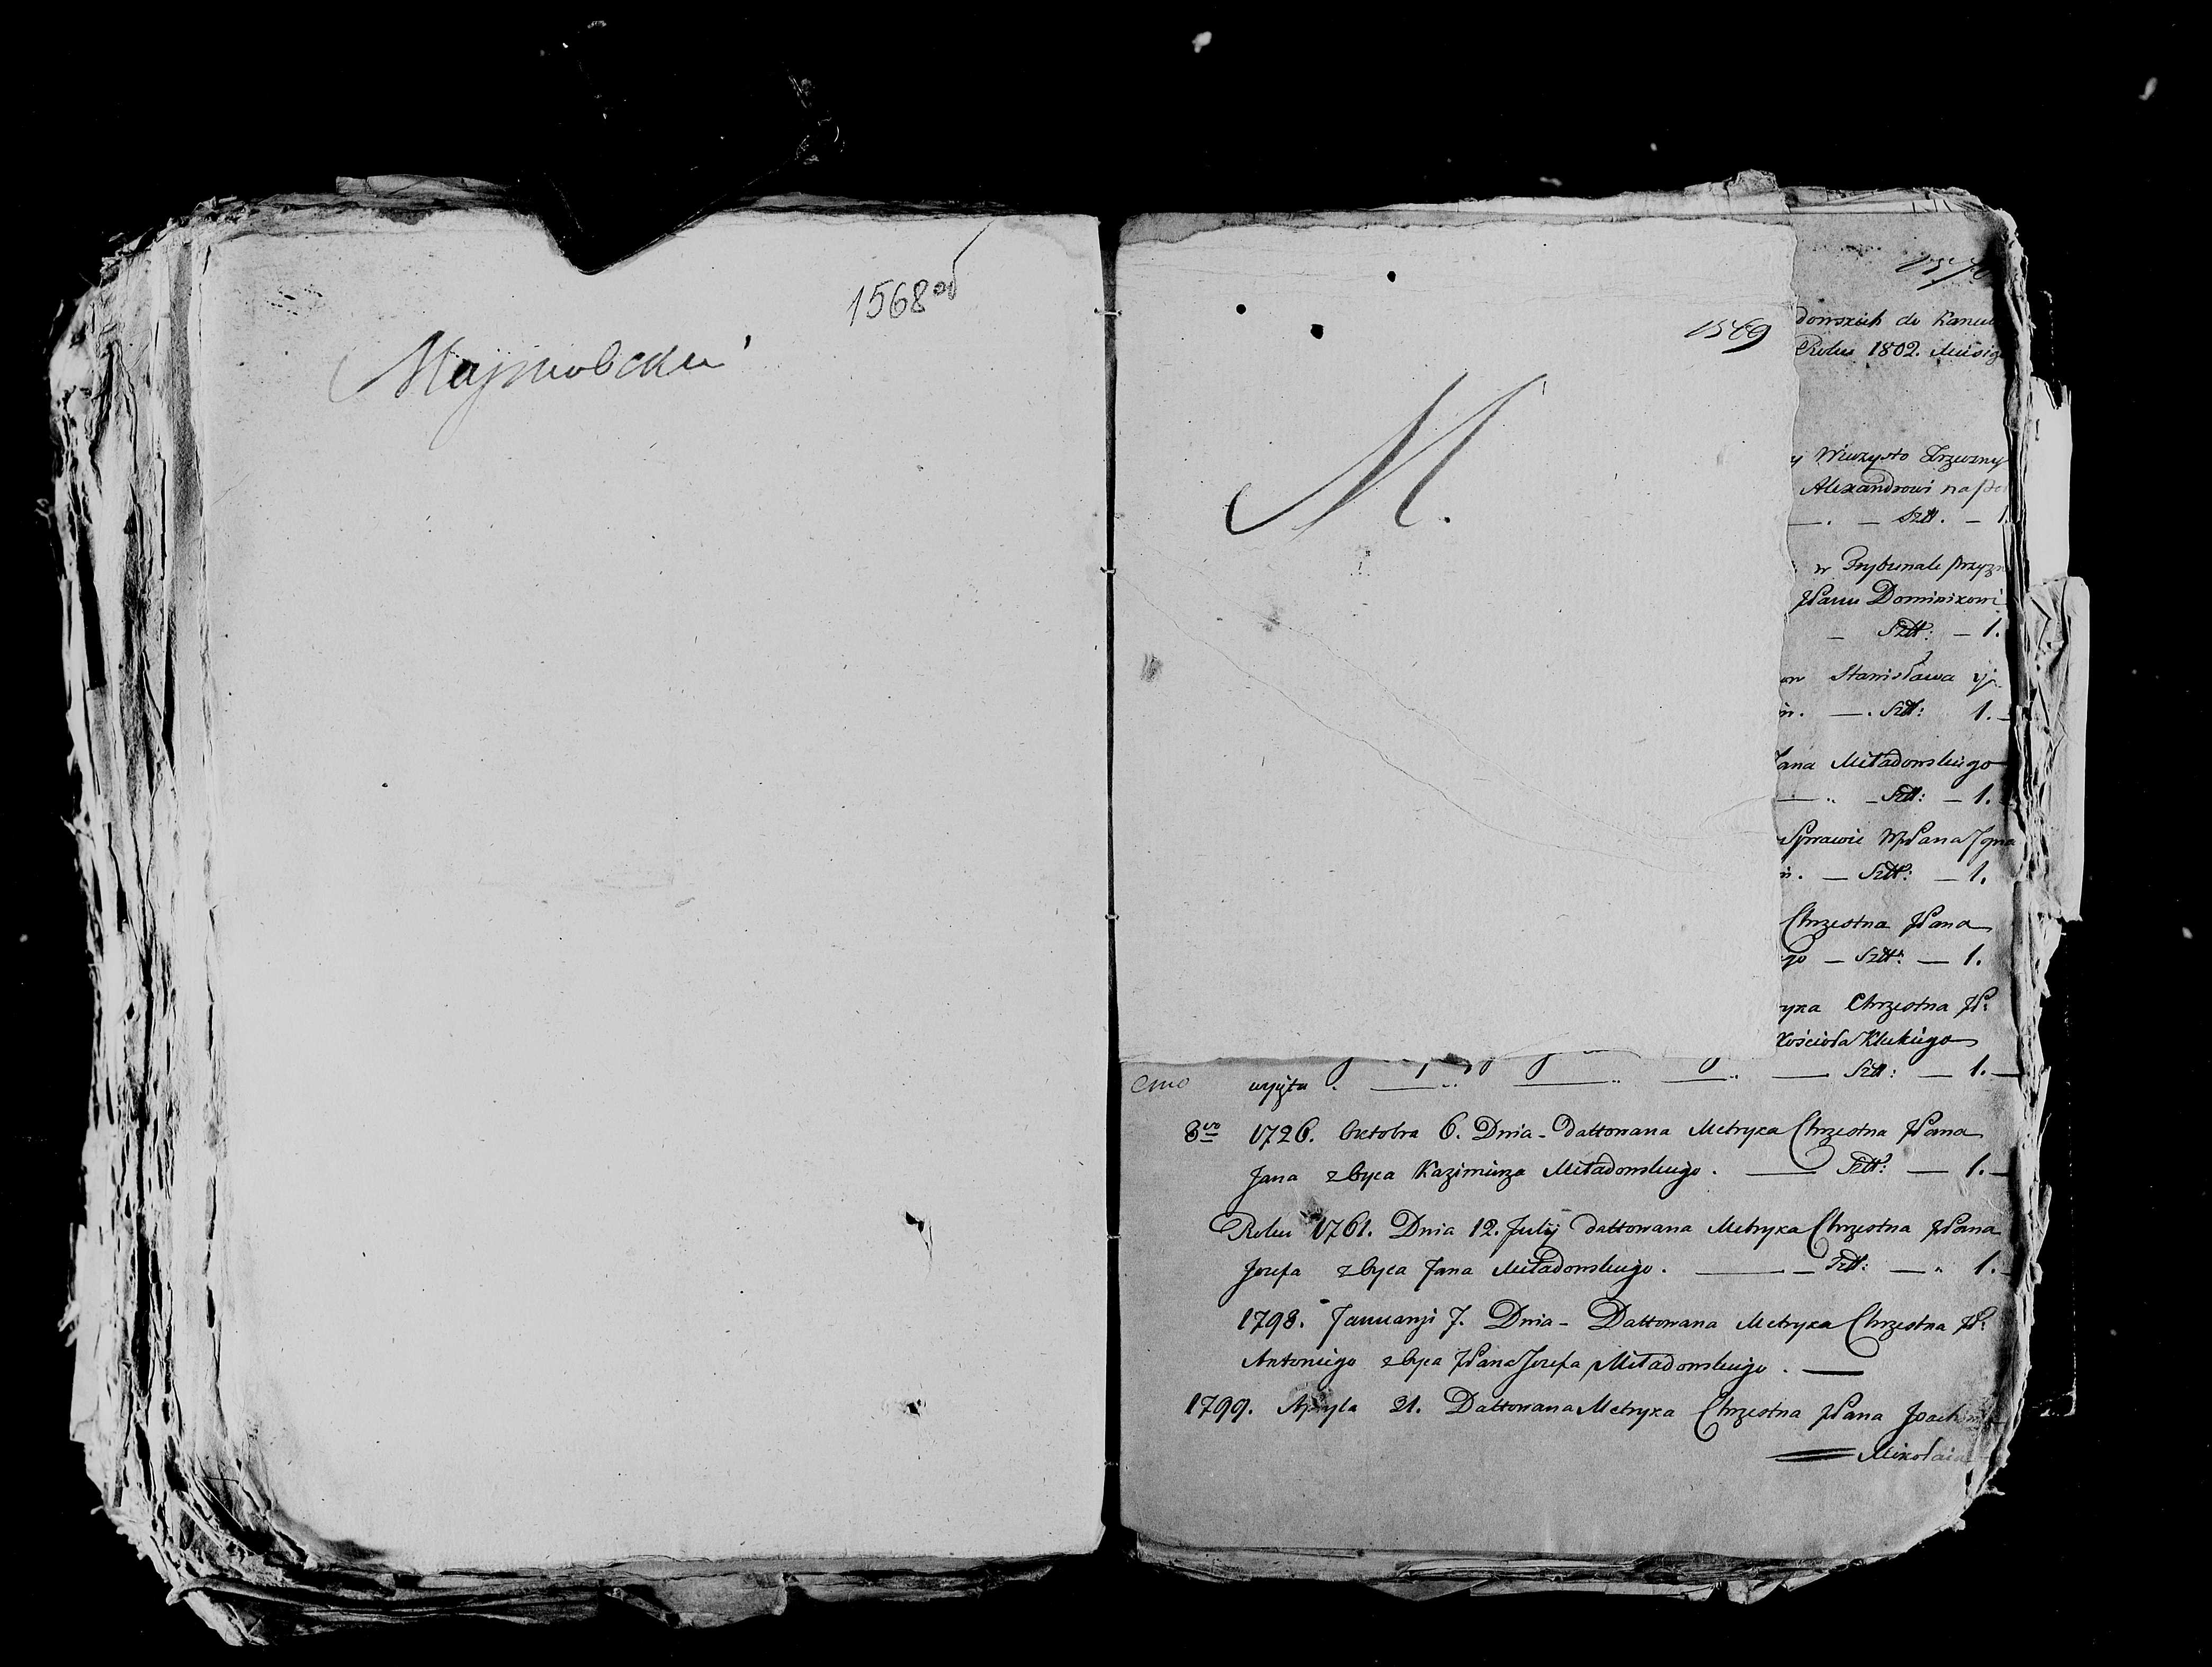 1568 об
1569
M.
1570
dowskich do Kance
Roku 1802. Miesią
y Wieczysto Zrzeczny
Alexandrowi na
Sztt. — 1.
w Trybunale przyz
JPanu Dominikowi
— Sztt: — 1.
Stanisława y
— Sztt: 1.
Jana Miładowskiego
— Sztt: — 1.
Sprawie WJPana Jgna
— Sztt: — 1.
Chrzestna JPana
go — Sztt: — 1.
ryka Chrzestna JP:
Kościoła
wyięta . — — — — Sztt: — 1. —
8vo 1726. Oktobra 6. Dnia - Dattowana Metryka Chrzestna JPana
Jana z Oyca Kazimierza Miładowskiego . — Sztt: — 1. —
Roku 1761. Dnia 12. Julij Dattowana Metryka Chrzestna JPana
Jozefa z Oyca Jana Miładowskiego . — — Sztt: — 1. —
1798. Januarji 7. Dnia - Dattowana Metryka Chrzestna JP:
Antoniego z Oyca JPana Jozefa Miładowskiego . —
1799. Apryla 21. Dattowana Metryka Chrzestna JPana Joachima
Mikołaia